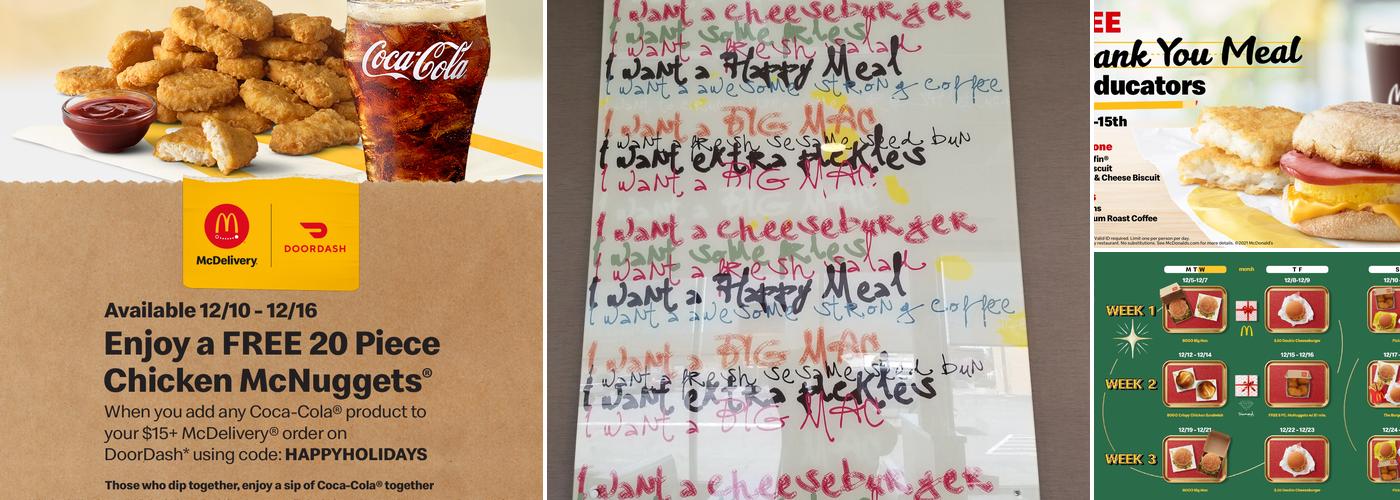 Coca-Cola
McDelivery
DOORDASH
Available 12/10 - 12/16
Enjoy a FREE 20 Piece
Chicken McNuggets®
When you add any Coca-Cola® product to
your $15+ McDelivery® order on
DoorDash* using code: HAPPYHOLIDAYS
Those who dip together, enjoy a sip of Coca-Cola® together
I want a cheeseburger
I want some fries
I want a fresh salad
I want a Happy Meal
I want a awesome strong coffee
I want a BIG MAC
I want a fresh sesame seed bun
I want extra pickles
I want a BIG MAC!
I want a cheeseburger
I want some fries
I want a fresh salad
I want a Happy Meal
I want a awesome strong coffee
I want a BIG MAC
I want a fresh sesame seed bun
I want extra pickles
I want a BIG MAC
I want a cheeseburger
EE
ank You Meal
ducators
-15th
one
fin®
scuit
& Cheese Biscuit
s
ns
um Roast Coffee
Valid ID required. Limit one per person per day.
y restaurant. No substitutions. See McDonalds.com for more details. ©2021 McDonald's
M T W
merch
T F
S
12/5-12/7
12/8-12/9
12/10 -
WEEK 1
BOGO Big Mac
$.50 Double Cheeseburger
12/12 - 12/14
12/15 - 12/16
12/17 -
WEEK 2
BOGO Crispy Chicken Sandwich
FREE 6 PC. McNuggets w/ $1 min.
12/19 - 12/21
12/22 - 12/23
12/24 -
WEEK 3
BOGO Big Mac